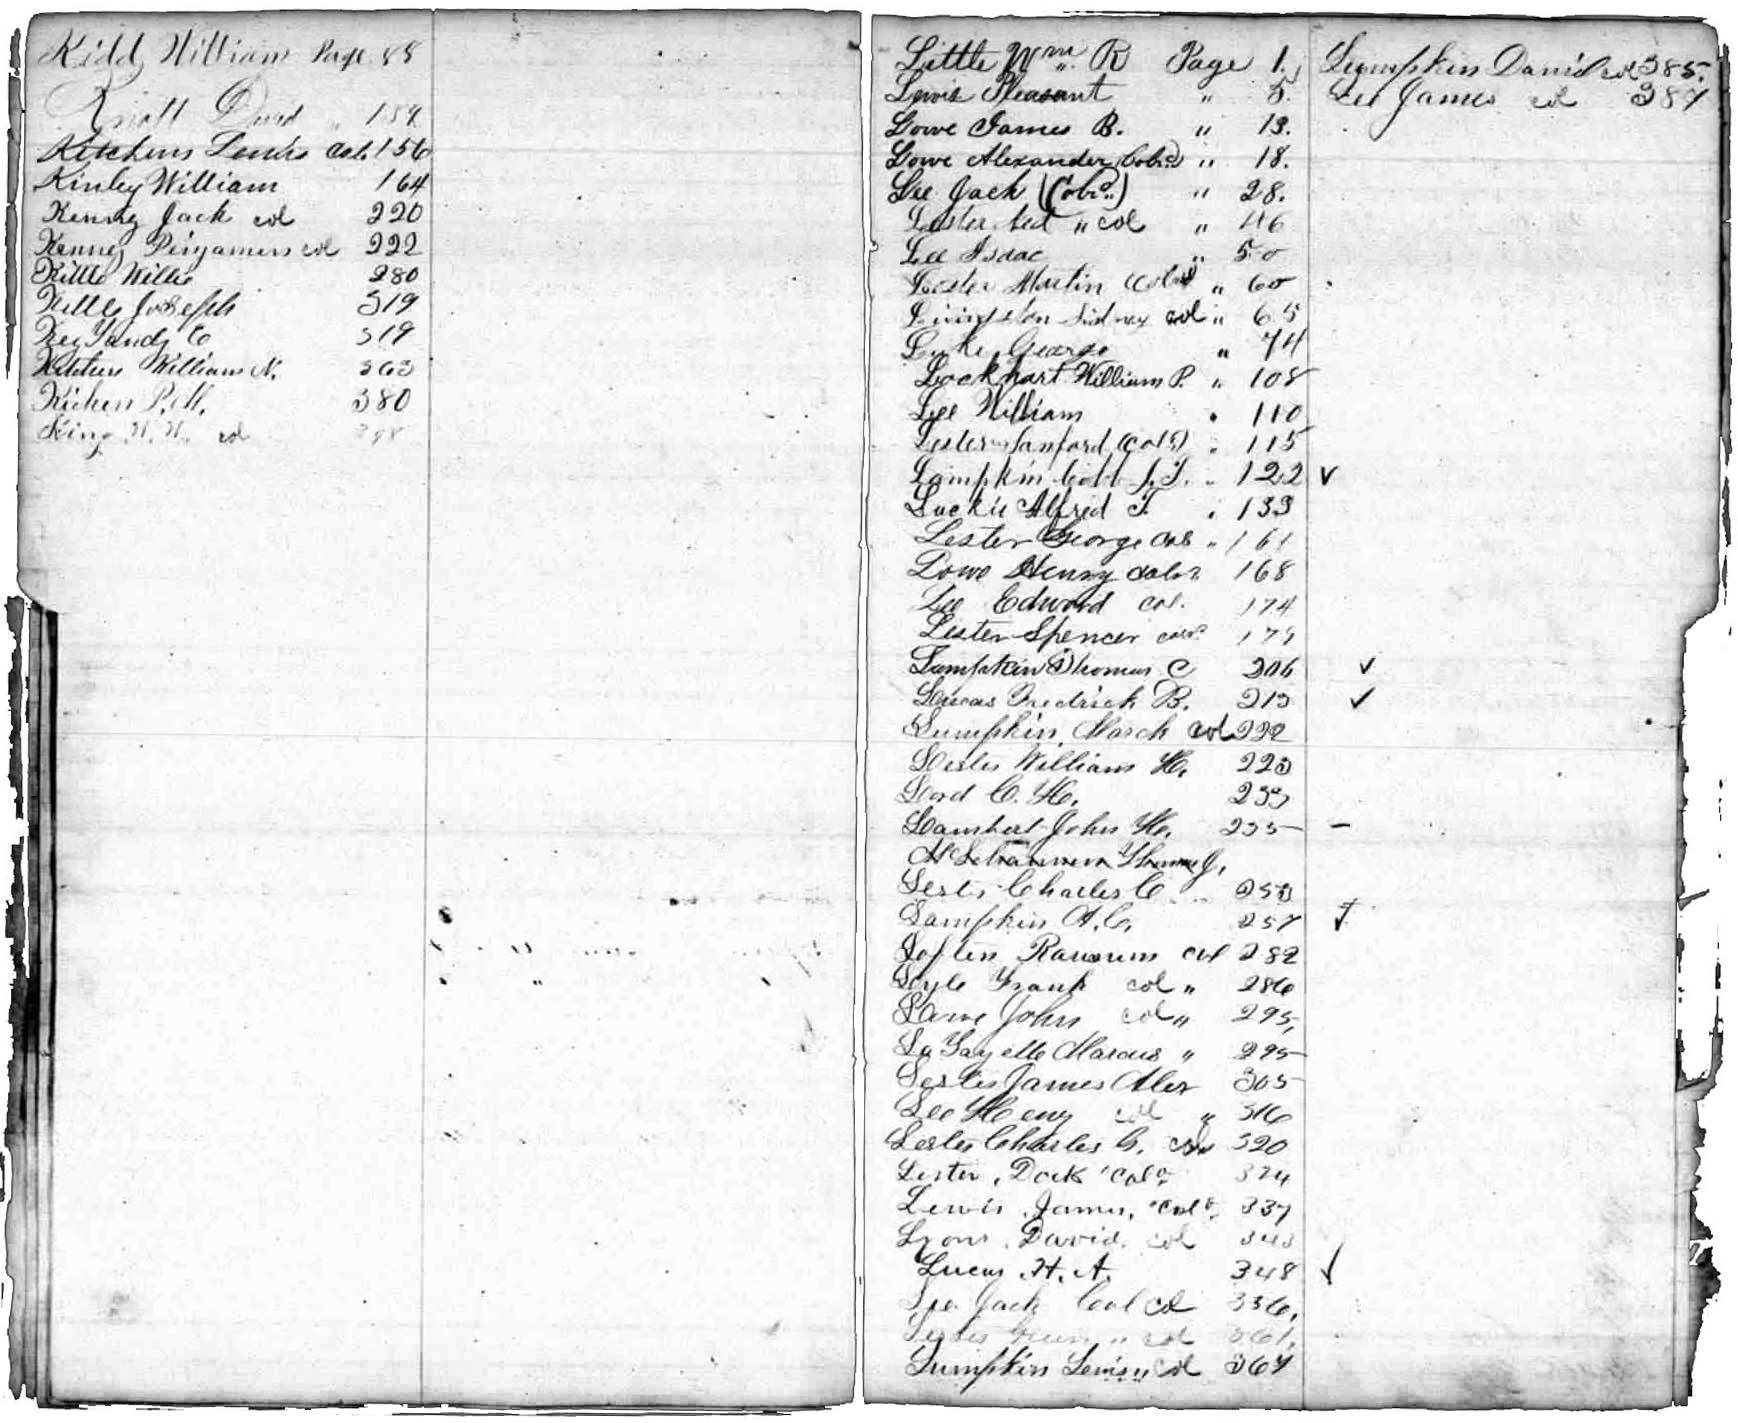 Kidd William Page 88
Knott David " 189
Kitchens Louis Col. 156
Kinley William 164
Kenney Jack col 220
Kenney col 222
Kittle Willie 280
Kittle Joseph 319
Key Tandy C 319
William N. 363
P. M. 380
King W. W. col
Little Wm. R Page 1.
Lewis Pleasant " 5.
Lowe James B. " 13.
Lowe Alexander (Cold) " 18.
Lee Jack (Cold) " 28.
Lester Ned " col " 46
Lee Isaac " 50
Lester Martin Cold " 60
Livingston Sidney col " 65
Luke George " 74
Lockhart William P. " 108
Lee William " 110
Lester Sanford (Cold) " 115
Lampkin Cobb J. T. " 122 ✓
Luckie Alfred F. " 133
Lester George Col " 161
Lowe Henry Cold 168
Lee Edward Col. 174
Lester Spencer Cold 179
Lumpkin Thomas C 206 ✓
Lucas Fredrick B. 213 ✓
Lumpkin March col 222
Lester William H. 223
Lord C. H. 233
Lambert John H. 235 -
Thomas J.
Lester Charles C 253
Lampkin A. C. 257 ✓
Loften Ransum col 282
Lyle Frank col " 286
Lowe John col " 295,
LaFayette Marcus " 295
Lester James Alex 305
Lee Heny col " 316
Lester Charles G. Col 320
Lester, Dock "Cold 324
Lewis, James, "Cold 337
Lyons, David. col 343
Lucas H. A. 348 ✓
Lee Jack Cool Col 356,
Lester Green " col 361,
Lumpkin Lewis " Col 364
Lumpkin David col 385.
Lee James col 387